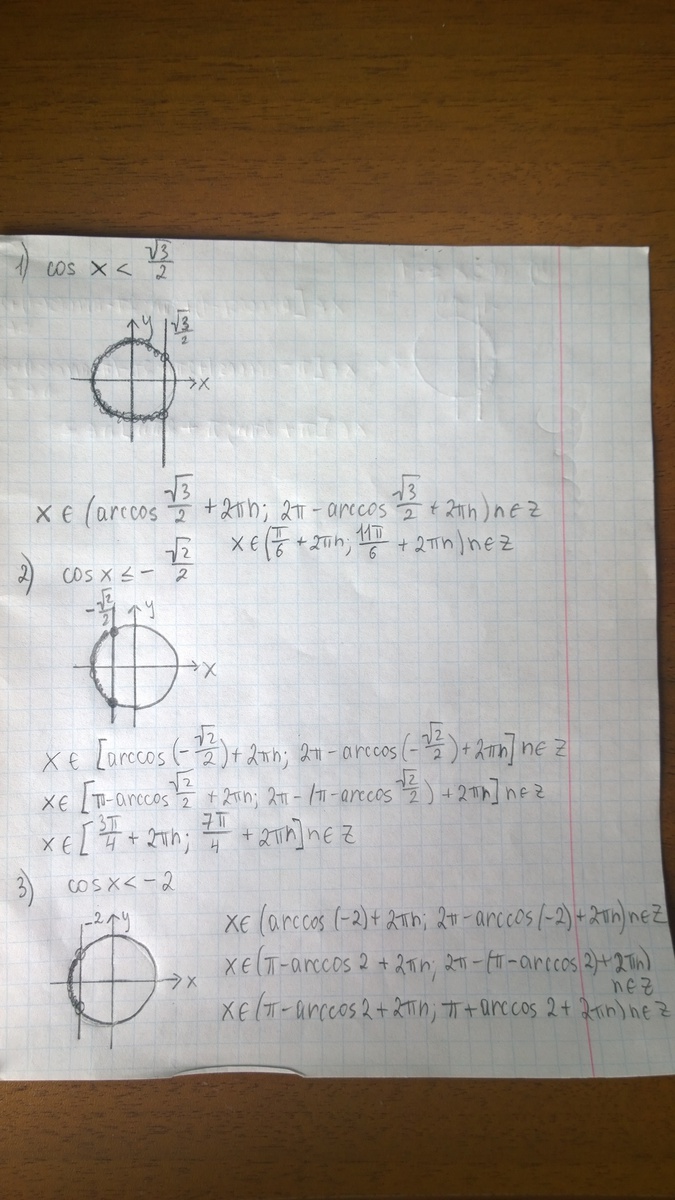 1) cos x < √3/2
y √3/2
x
x ∈ (arccos √3/2 + 2πn; 2π - arccos √3/2 + 2πn) n ∈ z
x ∈ (π/6 + 2πn; 11π/6 + 2πn) n ∈ z
2) cos x ≤ - √2/2
-√2/2 y
x
x ∈ [arccos (-√2/2) + 2πn; 2π - arccos (-√2/2) + 2πn] n ∈ z
x ∈ [π - arccos √2/2 + 2πn; 2π - (π - arccos √2/2) + 2πn] n ∈ z
x ∈ [3π/4 + 2πn; 7π/4 + 2πn] n ∈ z
3) cos x < -2
-2 y
x
x ∈ (arccos (-2) + 2πn; 2π - arccos (-2) + 2πn) n ∈ z
x ∈ (π - arccos 2 + 2πn; 2π - (π - arccos 2) + 2πn)
n ∈ z
x ∈ (π - arccos 2 + 2πn; π + arccos 2 + 2πn) n ∈ z